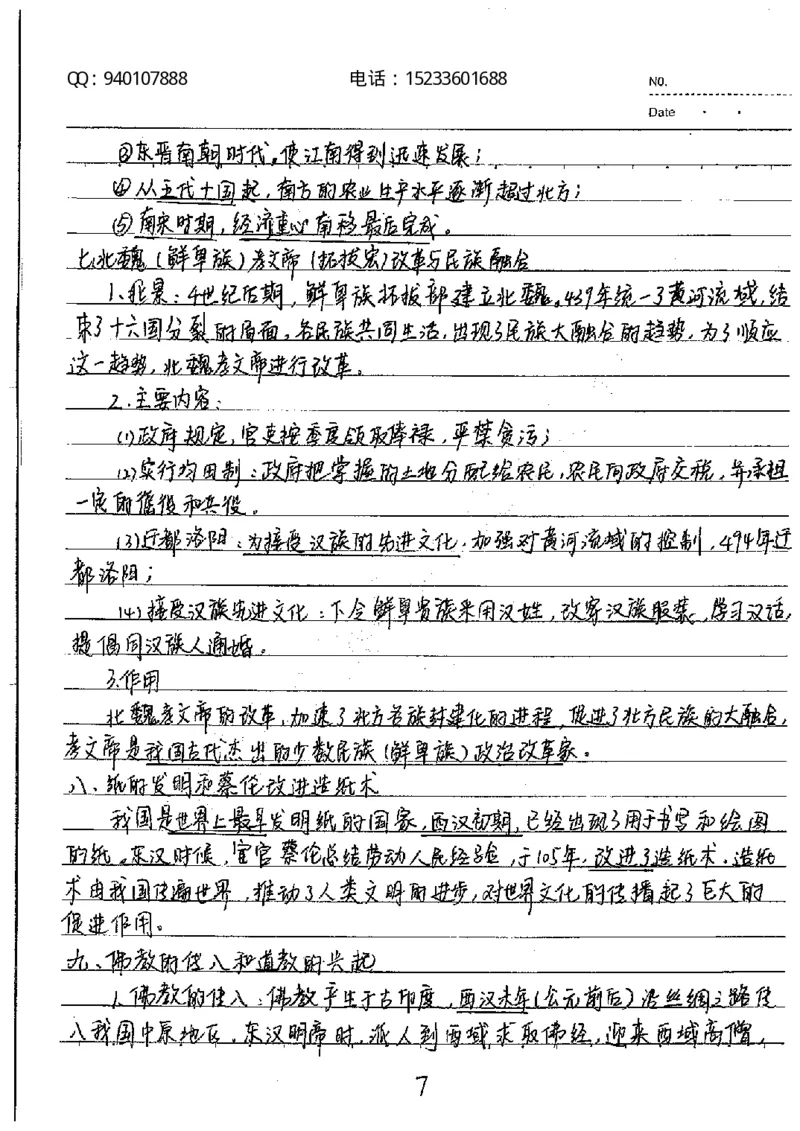 QQ：940107888 电话：15233601688 NO.
Date
③东晋南朝时代，使江南得到迅速发展；
④从五代十国起，南方的农业生产水平逐渐超过北方；
⑤南宋时期，经济重心南移最后完成。
七、北魏（鲜卑族）孝文帝（拓拔宏）改革与民族融合
1、背景：4世纪后期，鲜卑族拓拔部建立北魏。439年统一了黄河流域，结
束了十六国分裂的局面。各民族共同生活，出现了民族大融合的趋势，为了顺应
这一趋势，北魏孝文帝进行改革。
2.主要内容：
(1)政府规定，官吏按季度领取俸禄，严禁贪污；
(2)实行均田制：政府把掌握的土地分配给农民，农民向政府交税，并承担
一定的徭役和兵役。
(3)迁都洛阳：为接受汉族的先进文化，加强对黄河流域的控制，494年迁
都洛阳；
(4)接受汉族先进文化：下令鲜卑贵族采用汉姓，改穿汉族服装，学习汉话，
提倡同汉族人通婚。
3.作用
北魏孝文帝的改革，加速了北方各族封建化的进程，促进了北方民族的大融合，
孝文帝是我国古代杰出的少数民族（鲜卑族）政治改革家。
八、纸的发明和蔡伦改进造纸术
我国是世界上最早发明纸的国家，西汉初期，已经出现了用于书写和绘图
的纸。东汉时候，宦官蔡伦总结劳动人民经验，于105年，改进了造纸术。造纸
术由我国传遍世界，推动了人类文明的进步，对世界文化的传播起了巨大的
促进作用。
九、佛教的传入和道教的兴起
1、佛教的传入：佛教产生于古印度，西汉末年（公元前后）沿丝绸之路传
入我国中原地区，东汉明帝时，派人到西域求取佛经，迎来西域高僧，
7